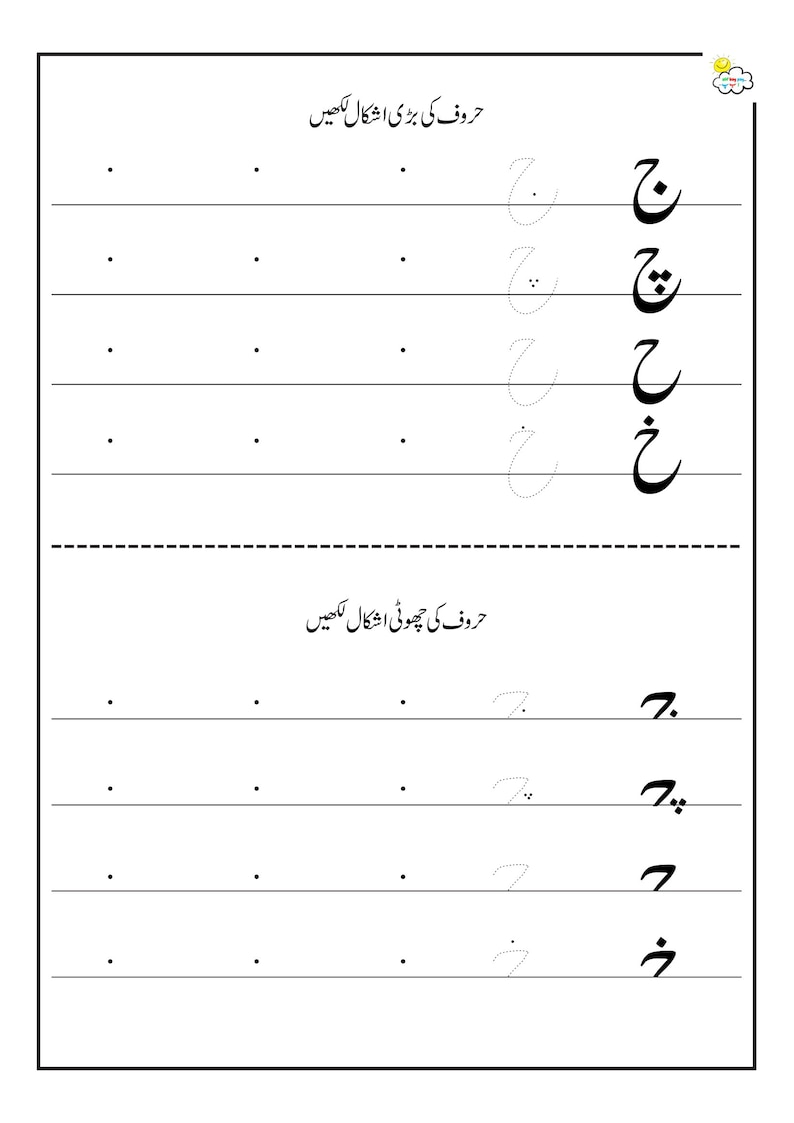 حروف کی بڑی اشکال لکھیں
ج ج
چ چ
ح ح
خ خ
حروف کی چھوٹی اشکال لکھیں
جـ جـ
چـ چـ
حـ حـ
خـ خـ